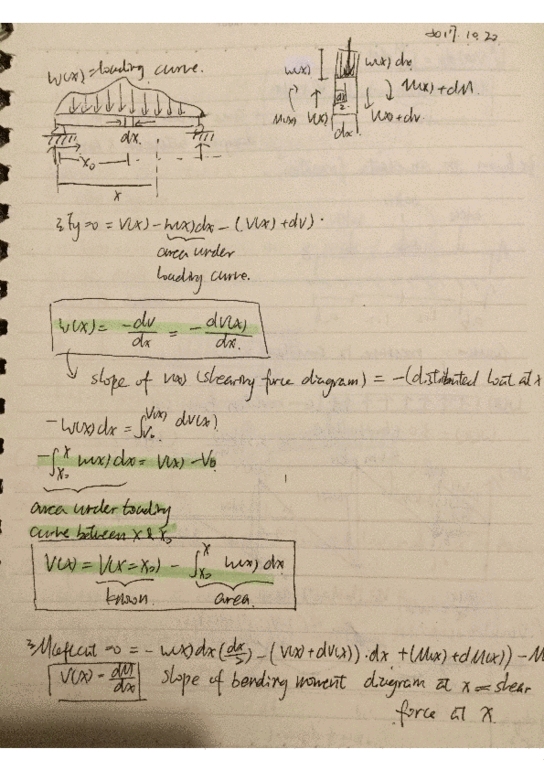 2017.10.22
w(x)=loading curve.
w(x)
w(x) dx
M(x)+dM.
M(x) V(x)
dx/2
V(x)+dv
dx
dx.
x₀
x
ΣFy=0 = V(x) - w(x)dx - (V(x)+dv).
area under
loading curve.
w(x) = -dv/dx = - dV(x)/dx.
slope of V(x) (shearing force diagram) = -(distributed load at x
-w(x)dx = ∫_{V₀}^{V(x)} dV(x)
-∫_{x₀}^{x} w(x)dx = V(x) - V₀
area under loading
curve between x & x₀
V(x) = V(x=x₀) - ∫_{x₀}^{x} w(x) dx
known. area.
ΣM@left cut =0 = - w(x)dx(dx/2) - (V(x)+dV(x))·dx + (M(x)+dM(x)) - M
V(x) = dM/dx slope of bending moment diagram at x = shear
force at x.